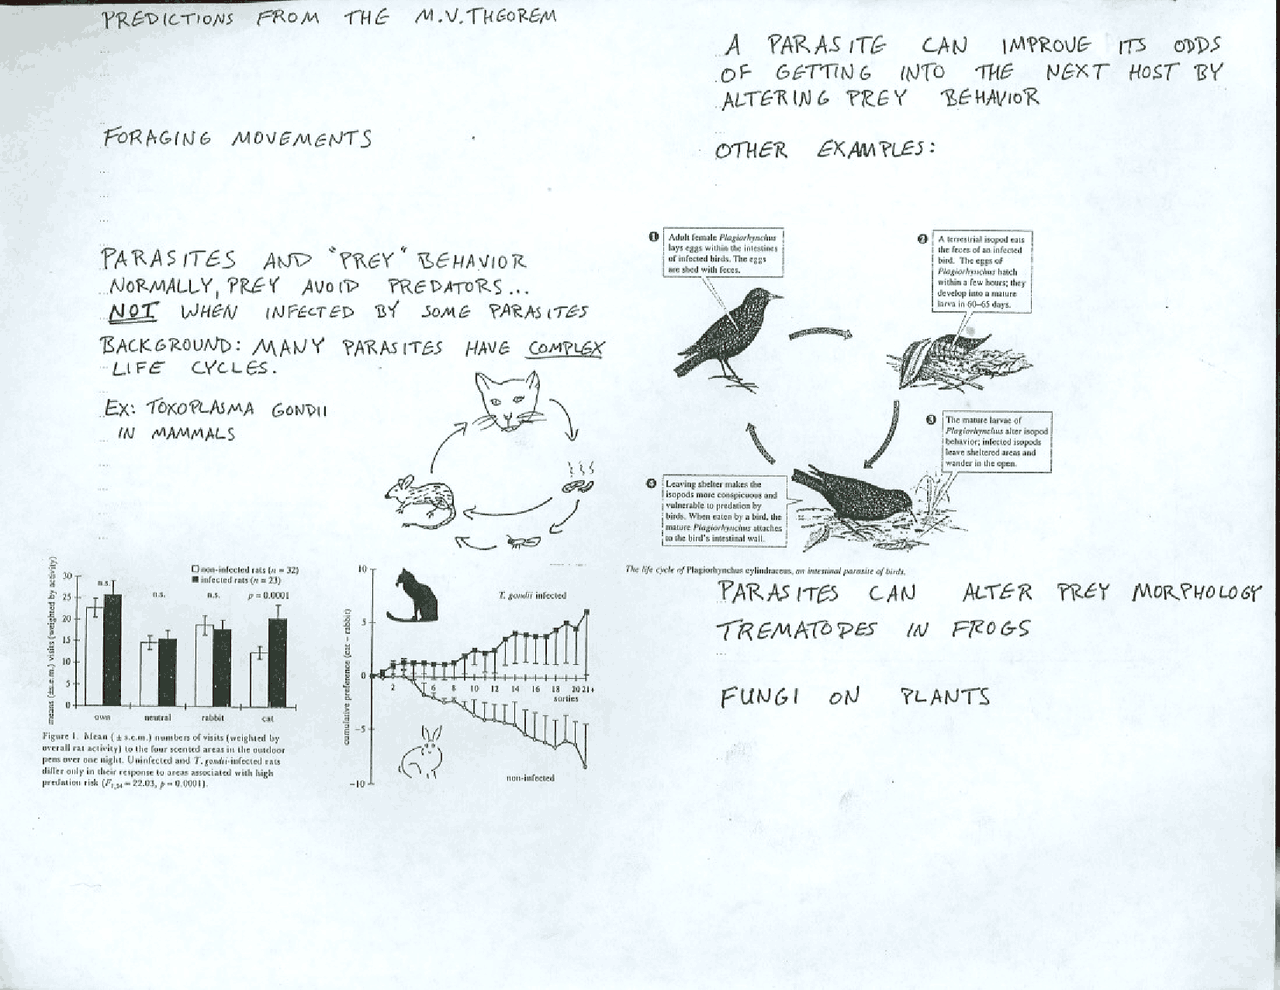 PREDICTIONS FROM THE M.V. THEOREM
FORAGING MOVEMENTS
PARASITES AND "PREY" BEHAVIOR
NORMALLY, PREY AVOID PREDATORS...
NOT WHEN INFECTED BY SOME PARASITES
BACKGROUND: MANY PARASITES HAVE COMPLEX
LIFE CYCLES.
EX: TOXOPLASMA GONDII
IN MAMMALS
means (±s.e.m.) visits (weighted by activity)
30
25
20
15
10
5
0
non-infected rats (n = 32)
infected rats (n = 23)
n.s.
n.s.
n.s.
p = 0.0001
own
neutral
rabbit
cat
Figure 1. Mean (± s.e.m.) numbers of visits (weighted by
overall rat activity) to the four scented areas in the outdoor
pens over one night. Uninfected and T. gondii-infected rats
differ only in their response to areas associated with high
predation risk
cumulative preference (cat − rabbit)
10
5
0
−5
−10
T. gondii infected
2 4 6 8 10 12 14 16 18 20 21+
sorties
non-infected
A PARASITE CAN IMPROVE ITS ODDS
OF GETTING INTO THE NEXT HOST BY
ALTERING PREY BEHAVIOR
OTHER EXAMPLES:
1
Adult female Plagiorhynchus
lays eggs within the intestines
of infected birds. The eggs
are shed with feces.
2
A terrestrial isopod eats
the feces of an infected
bird. The eggs of
Plagiorhynchus hatch
within a few hours; they
develop into a mature
larva in 60–65 days.
3
The mature larvae of
Plagiorhynchus alter isopod
behavior; infected isopods
leave sheltered areas and
wander in the open.
4
Leaving shelter makes the
isopods more conspicuous and
vulnerable to predation by
birds. When eaten by a bird, the
mature Plagiorhynchus attaches
to the bird's intestinal wall.
The life cycle of Plagiorhynchus cylindraceus, an intestinal parasite of birds.
PARASITES CAN ALTER PREY MORPHOLOGY
TREMATODES IN FROGS
FUNGI ON PLANTS